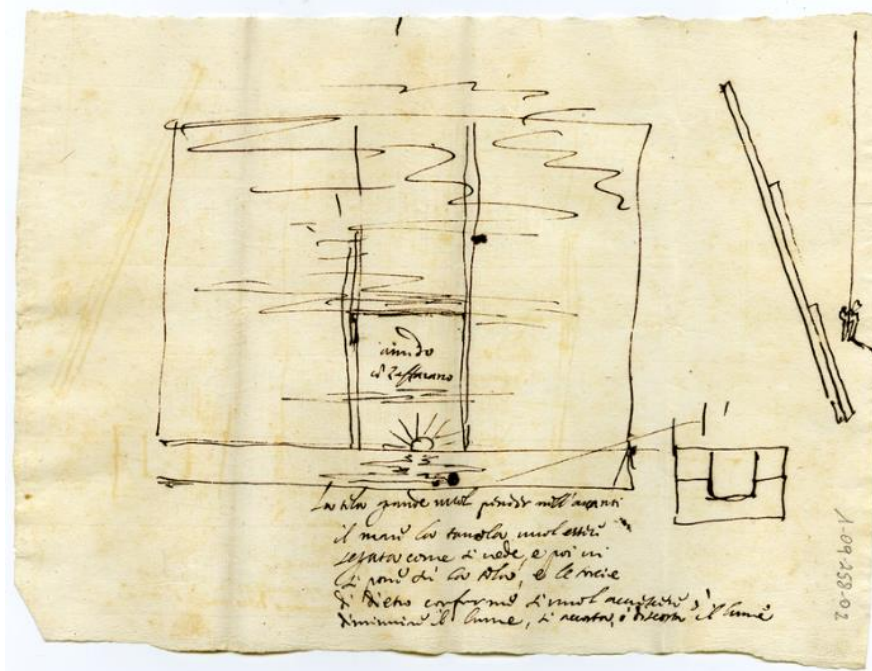 amido
di Zaffarano
La tela grande vuol pender nell'avanti
il mare la tavola vuol essere
segata come si vede, e poi vi
si pone su la tela, e le torcie
di dietro conforme si vuol accrescere o
diminuire il lume, si accosta, o discosta il lume
1-09-258-02